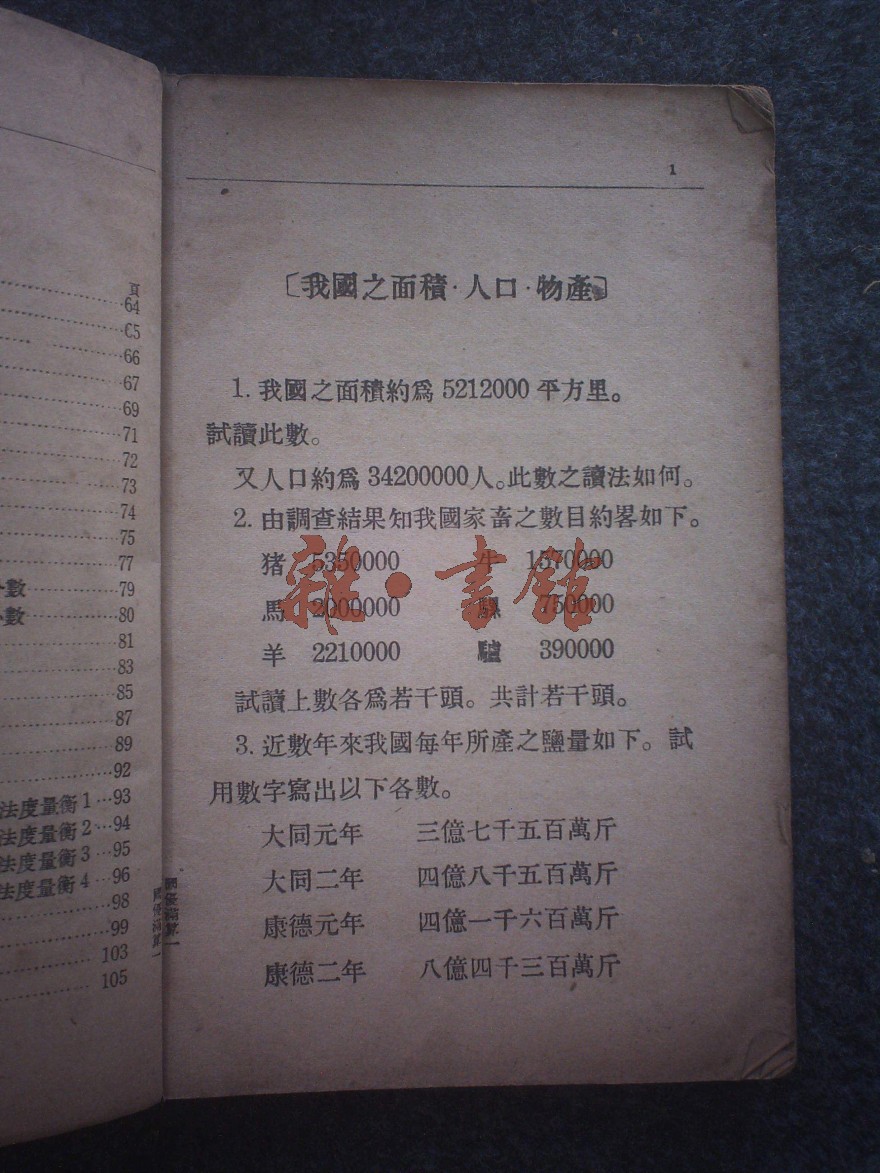 頁
64
66
67
69
71
72
73
74
75
77
數 79
數 80
81
83
85
87
89
92
法度量衡1 93
法度量衡2 94
法度量衡3 95
法度量衡4 96
98
99
103
105
1
〔我國之面積·人口·物產〕
1. 我國之面積約爲 5212000 平方里。
試讀此數。
又人口約爲 34200000人。此數之讀法如何。
2. 由調查結果知我國家畜之數目約畧如下。
猪 5350000 牛 1370000
馬 2000000 騾 750000
羊 2210000 驢 390000
試讀上數各爲若干頭。共計若干頭。
3. 近數年來我國每年所產之鹽量如下。試
用數字寫出以下各數。
大同元年 三億七千五百萬斤
大同二年 四億八千五百萬斤
康德元年 四億一千六百萬斤
康德二年 八億四千三百萬斤
雜·書館